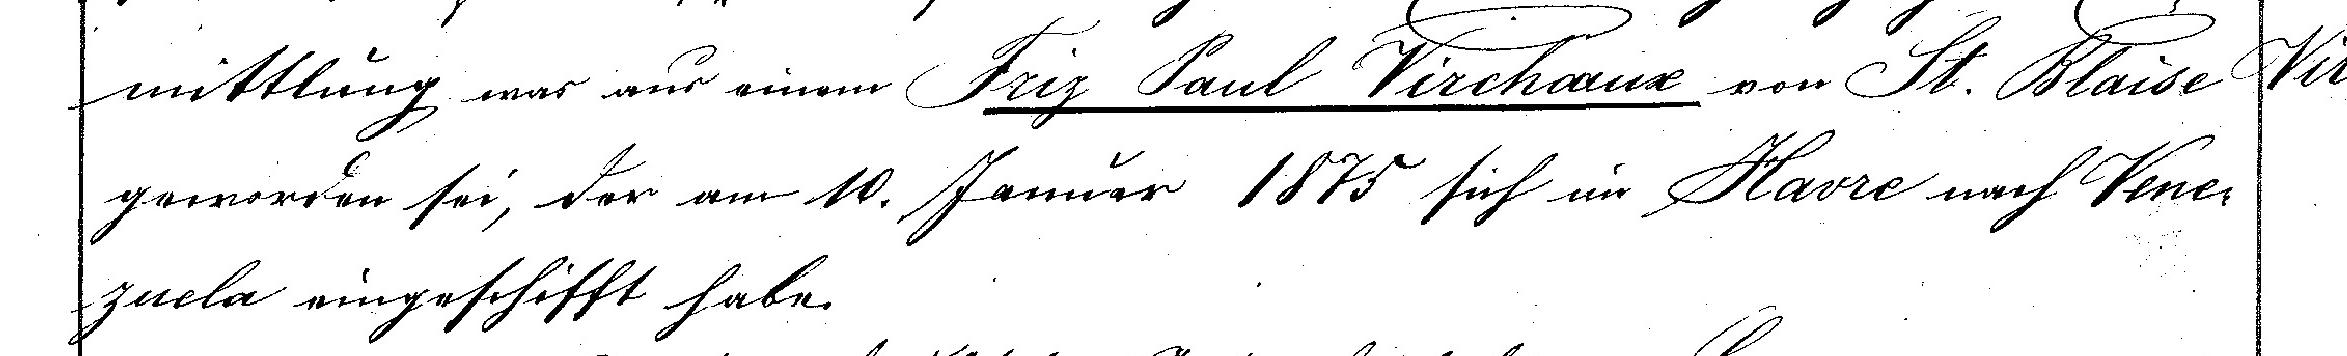 mittlung was aus einem Friz Paul Virchaux von St. Blaise
geworden sei, der am 10. Januar 1875 sich in Havre nach Vene-
zuela eingeschifft habe.